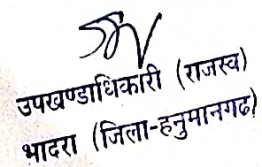 उपखण्डाधिकारी (राजस्व)
भादरा (जिला-हनुमानगढ)